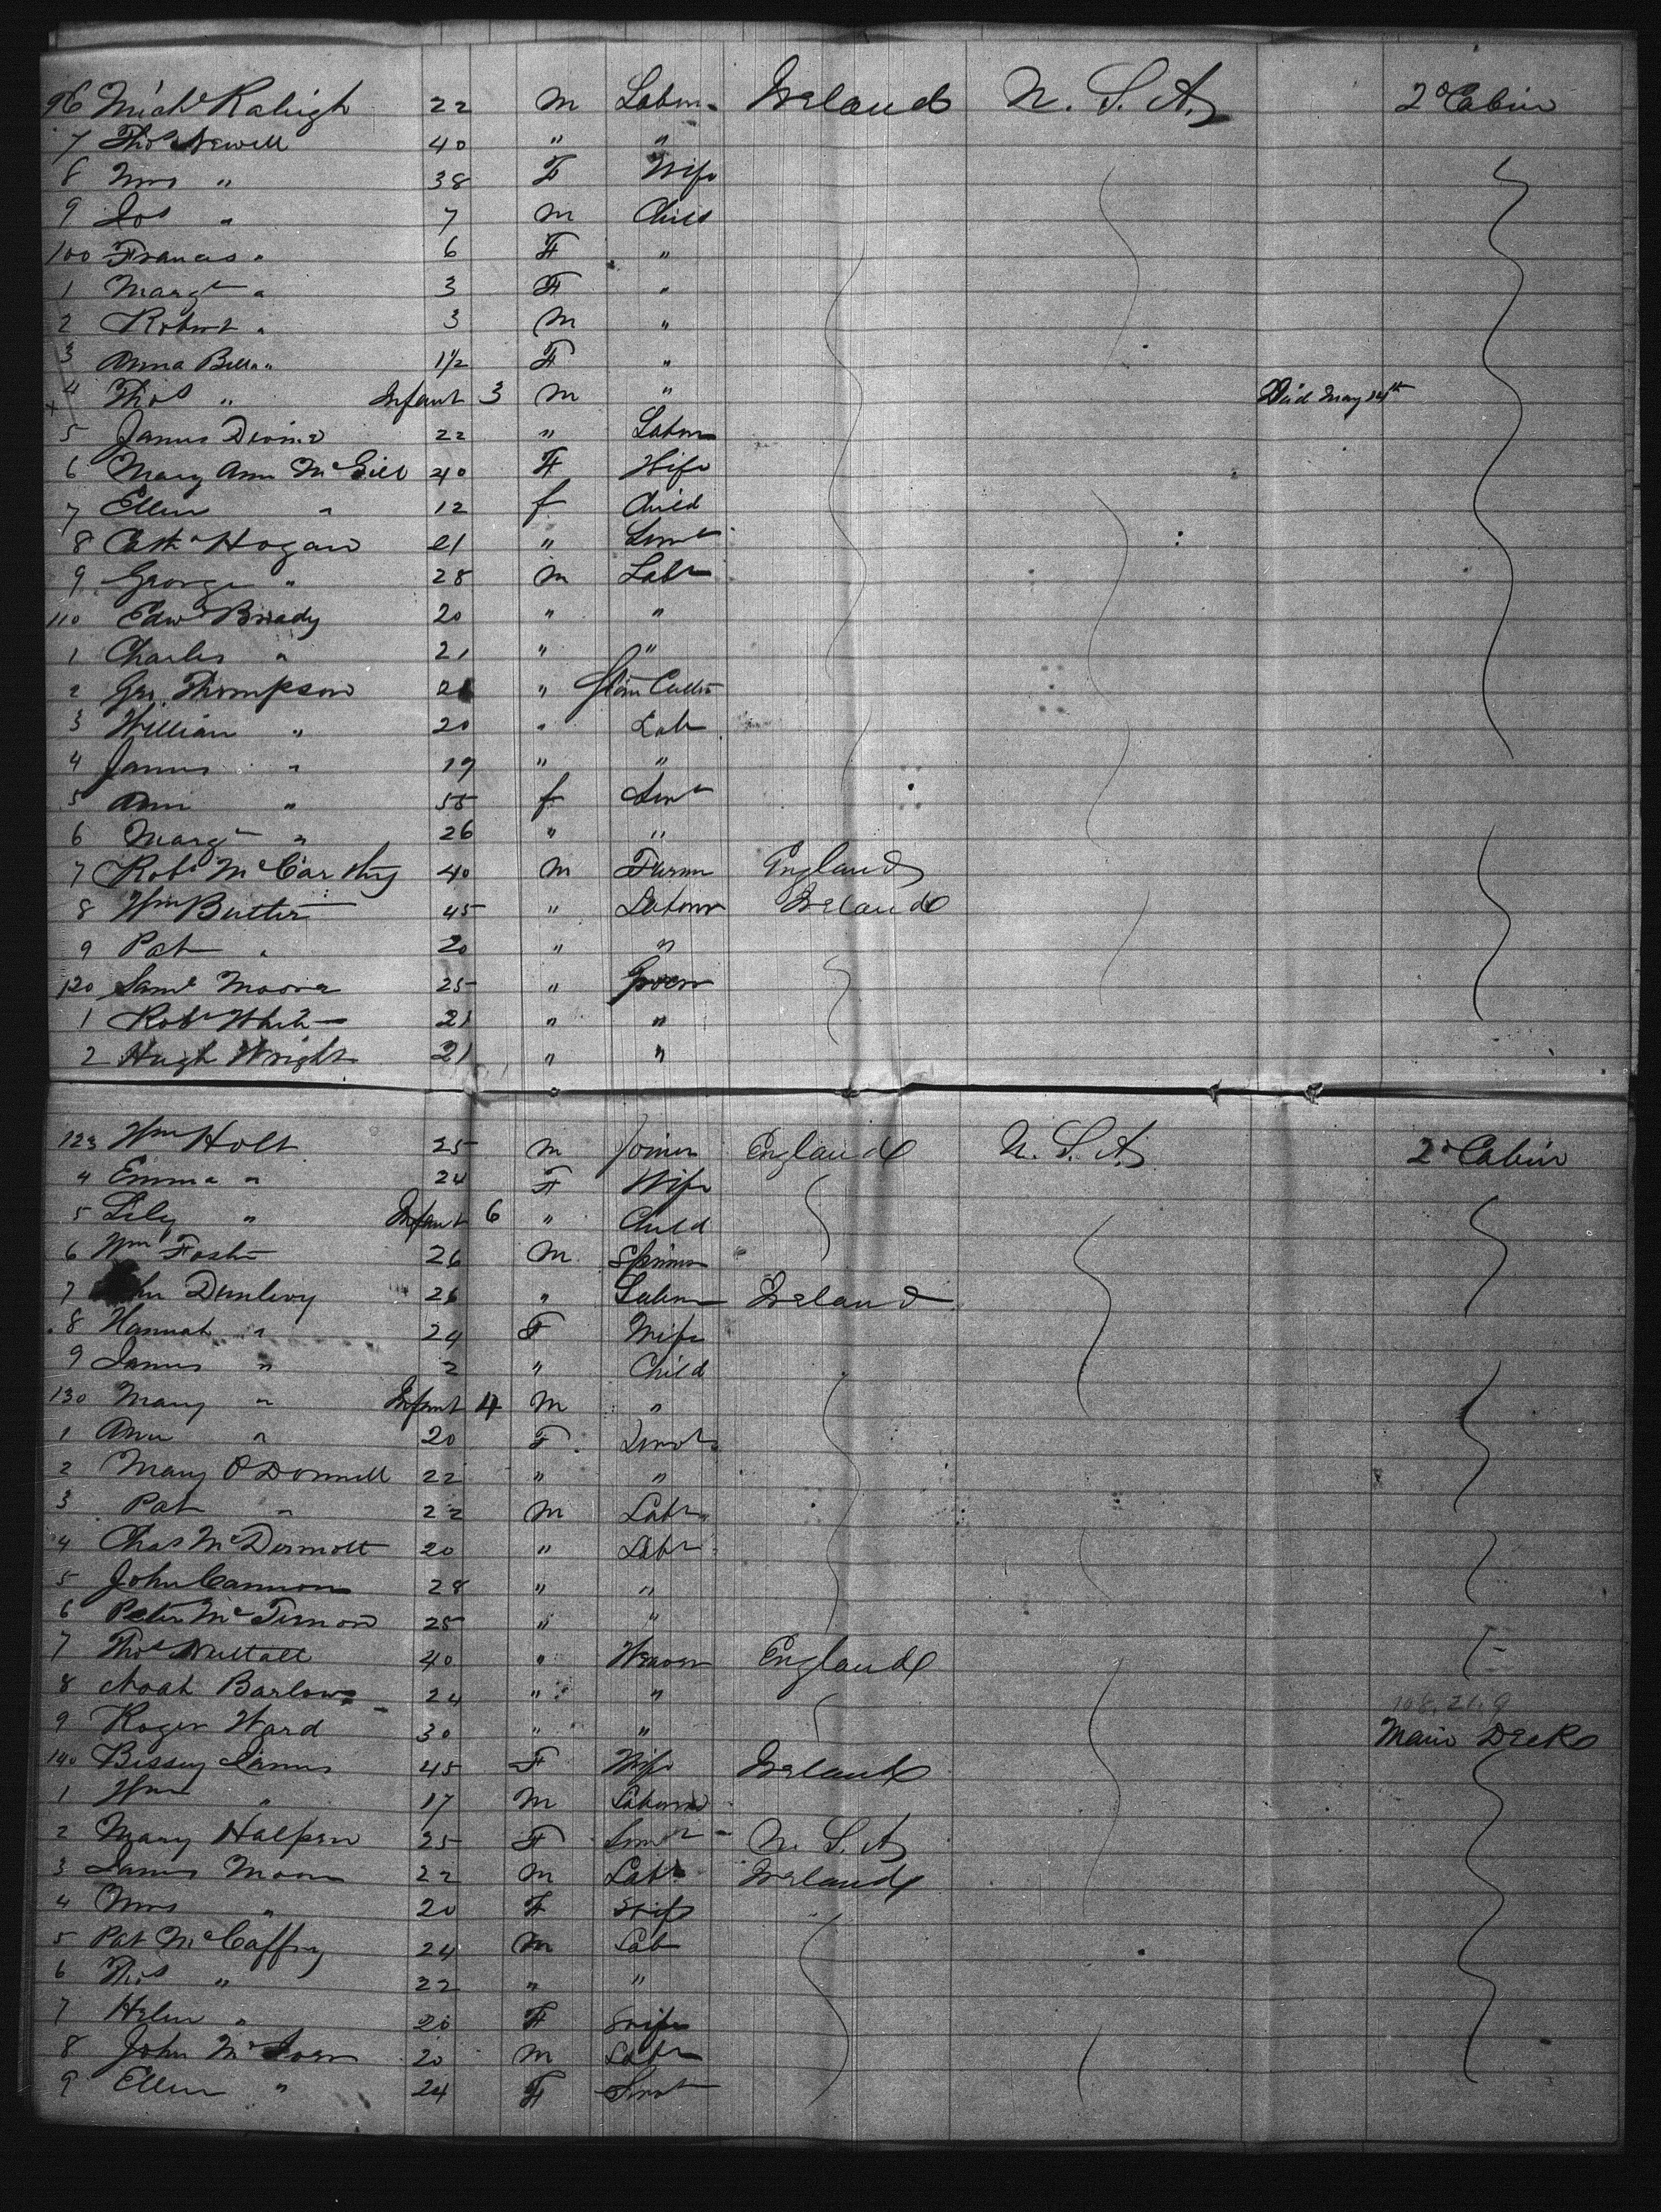 96 Michl Raleigh 22 m Labor Ireland U. S. A. 2d Cabin
7 Thos Newell 40 " "
8 Mrs " 38 F Wife
9 Jos " 7 m Child
100 Francis " 6 F "
1 Margt " 3 F "
2 Robert " 3 m "
3 Anna Bella " 1½ F "
4 Thos " Infant 3 m " Died May 14th
5 James Devine 22 " Labor
6 Mary Ann McGill 40 F Wife
7 Ellen " 12 f Child
8 Cath Hogan 21 " Servt
9 George " 28 m Labr
110 Edwd Brady 20 " "
1 Charles " 21 " "
2 Geo. Thompson 21 " Stone Cutter
3 William " 20 " Labr
4 James " 19 " "
5 Ann " 55 f Servt
6 Margt " 26 " "
7 Robt McCarthy 40 m Farmer England
8 Wm Butler 45 " Laborer Ireland
9 Pat " 20 " "
120 Saml Moore 25 " Grocer
1 Robt White 21 " "
2 Hugh Wright 21 " "
123 Wm Holt 25 m Joiner England U. S. A. 2d Cabin
4 Emma " 24 F Wife
5 Lily " Infant 6 " Child
6 Wm Foster 26 m Spinner
7 John Dunlevy 26 " Labor Ireland
8 Hannah " 24 F Wife
9 James " 2 " Child
130 Mary " Infant 4 m "
1 Ann " 20 F Servt
2 Mary O'Donnell 22 " "
3 Pat " 22 m Labr
4 Chas McDermott 20 " Labr
5 John Cannon 28 " "
6 Peter McTernon 25 " "
7 Thos Nuttall 40 " Weaver England
8 Noah Barlow 24 " "
108.21.9
9 Roger Ward 30 " " Main Deck
140 Bessey James 45 F Wife Ireland
1 Wm " 17 m Laborer
2 Mary Halpen 25 F Servt U. S. A.
3 James Moore 22 m Labr Ireland
4 Mrs " 20 F Wife
5 Pat McCaffry 24 m Lab
6 Thos " 22 " "
7 Helen " 20 F Wife
8 John 20 m Labr
9 Ellen " 24 F Servt